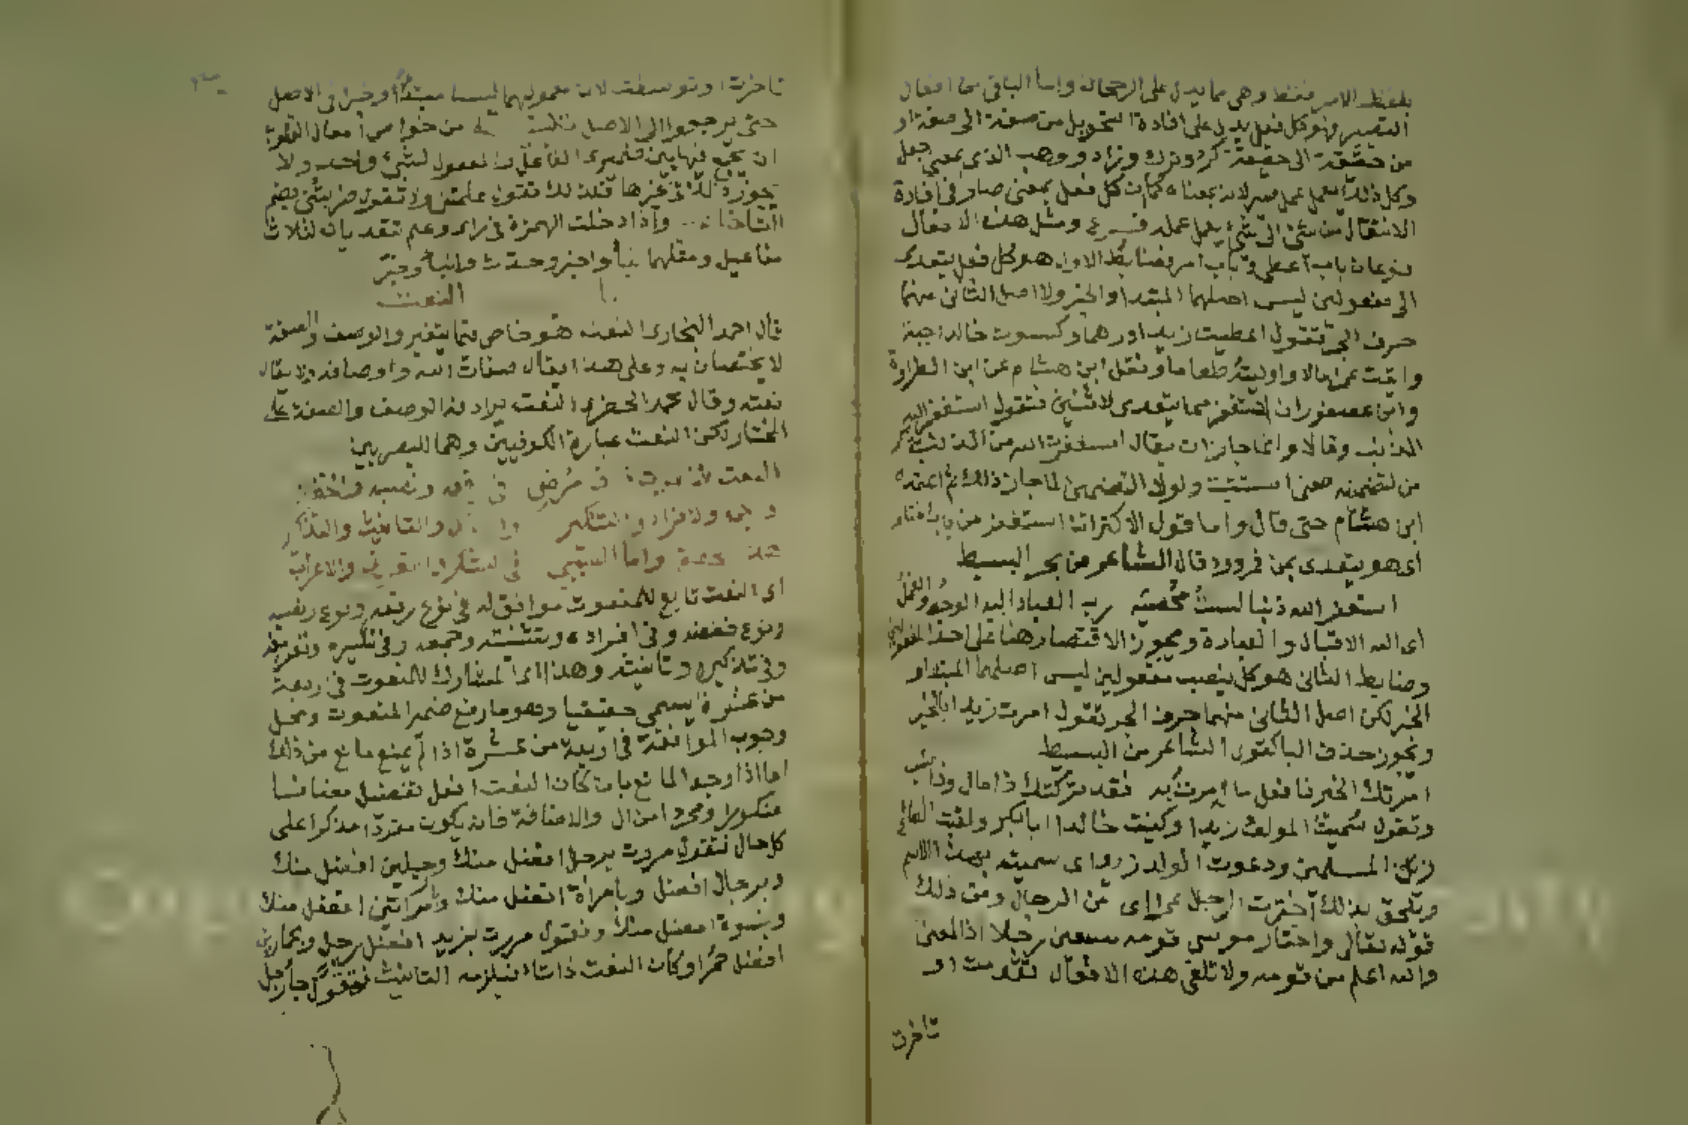 بلفظ الامر فقط وهي مما يدل على الرجحان واما الباقي من افعال
التصيير فهو كل فعل يدل على افادة التحويل من صفة الى صفة او
من حقيقة الى حقيقة كرد وترك وزاد ووهب الذي بمعنى جعل
وكل ذلك يعمل عمل صير لانه بمعناه كما ان كل فعل بمعنى صار في افادة
الانتقال من شئ الى شئ يعمل عمله فرع ومثل هذه الافعال
نوعان باب اعطى وباب امر فضابط الاول هو كل فعل يتعدى
الى مفعولين ليس اصلهما المبتدا والخبر ولا اصل الثاني منهما
حرف الجر تقول اعطيت زيدا درهما وكسوت خالدا جبة
واتيت عمرا مالا واوليته طعاما ونقل ابن هشام عن ابن الطراوة
وابن عصفور ان استغفر مما يتعدى لاثنين فتقول استغفر الله
الذنب وقالا وانما جاز ان يقال استغفرت الله من الذنب
من لتضمنه معنى استتبت ولولا التضمين لما جاز ذلك ثم اعتمده
ابن هشام حتى قال واما قول الاكثر ان استغفر من باب اختار
اي هو يتعدى بمن فردود قال الشاعر من بحر البسيط
استغفر الله ذنبا لست محصيه رب العباد اليه الوجه والعمل
اي اليه الاقبال والعبادة ويجوز الاقتصار هنا على احد المفعولين
وضابط الثاني هو كل ينصب مفعولين ليس اصلهما المبتدا و
الخبر لكن اصل الثاني منهما حرف الجر تقول امرت زيدا بالخير
ويجوز حذف البا كقول الشاعر من البسيط
امرتك الخير فافعل ما امرت به فقد تركتك ذا مال وذا نشب
وتقول سميت المولف زيدا وكنيت خالدا ابا بكر ولقبت
المسلمين ودعوت الولد زيدا اي سميته بهذا الاسم
ويلحق بذلك اخترت الرجل عمرا اي من الرجال ومن ذلك
قوله تعالى واختار موسى قومه سبعين رجلا اذ المعنى
والله اعلم من قومه ولا تلغى هذه الافعال تقدمت او
تاخرت
تاخرت او توسطت لان معموليهما ليسا مبتدأ وخبرا في الاصل
حتى يرجعوا الى الاصل من خواص افعال القلوب
ان يجئ فيها بين ضميري الفاعل والمفعول لشئ واحد ولا
يجوز ذلك في غيرها فلذلك تقول علمتني ولا تقول ضربتني بضم
التاء واذا دخلت الهمزة في راى وعلم تعديان لثلاث
مفاعيل ومثلهما نبأ واخبر وحدث وانبأ وخبر
النعت
قال احمد البخاري النعت هو خاص بما يتغير والوصف والصفة
لا يختصان به وعلى هذا يقال صفات الله واوصافه ولا يقال
نعته وقال محمد الخضري النعت يرادفه الوصف والصفة على
المختار لكن النعت عبارة الكوفيين وهما للبصريين
النعت في ونصبه وخفض
والتانيث والتذكير
واما السببي في التنكير والاعراب
اي النعت تابع للمنعوت موافق له في نوع رفعه ونوع نصبه
ونوع خفضه وفي افراده وتثنيته وجمعه وفي تنكيره وتعريفه
وفي تذكيره وتانيثه وهذا اي المشارك للمنعوت في اربعة
من عشرة يسمى حقيقيا وهو ما رفع ضمير المنعوت ومحل
وجوب الموافقة في اربعة من عشرة اذا لم يمنع مانع من ذلك
اما اذا وجد المانع بان كان النعت افعل تفضيل
منكورا ومجردا من ال والاضافة فانه يكون مفردا مذكرا على
كل حال فتقول مررت برجل افضل منك وبرجلين افضل منك
وبرجال افضل وبامراة افضل منك وبامراتين افضل منك
وبنسوة افضل منك وتقول مررت بزيد افضل رجل
افضل او كان النعت فيلزمه التانيث فتقول جا رجل